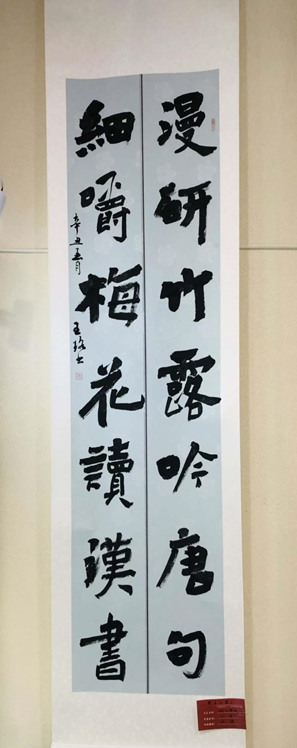 漫研竹露吟唐句
細嚼梅花讀漢書
辛丑五月
王珞士